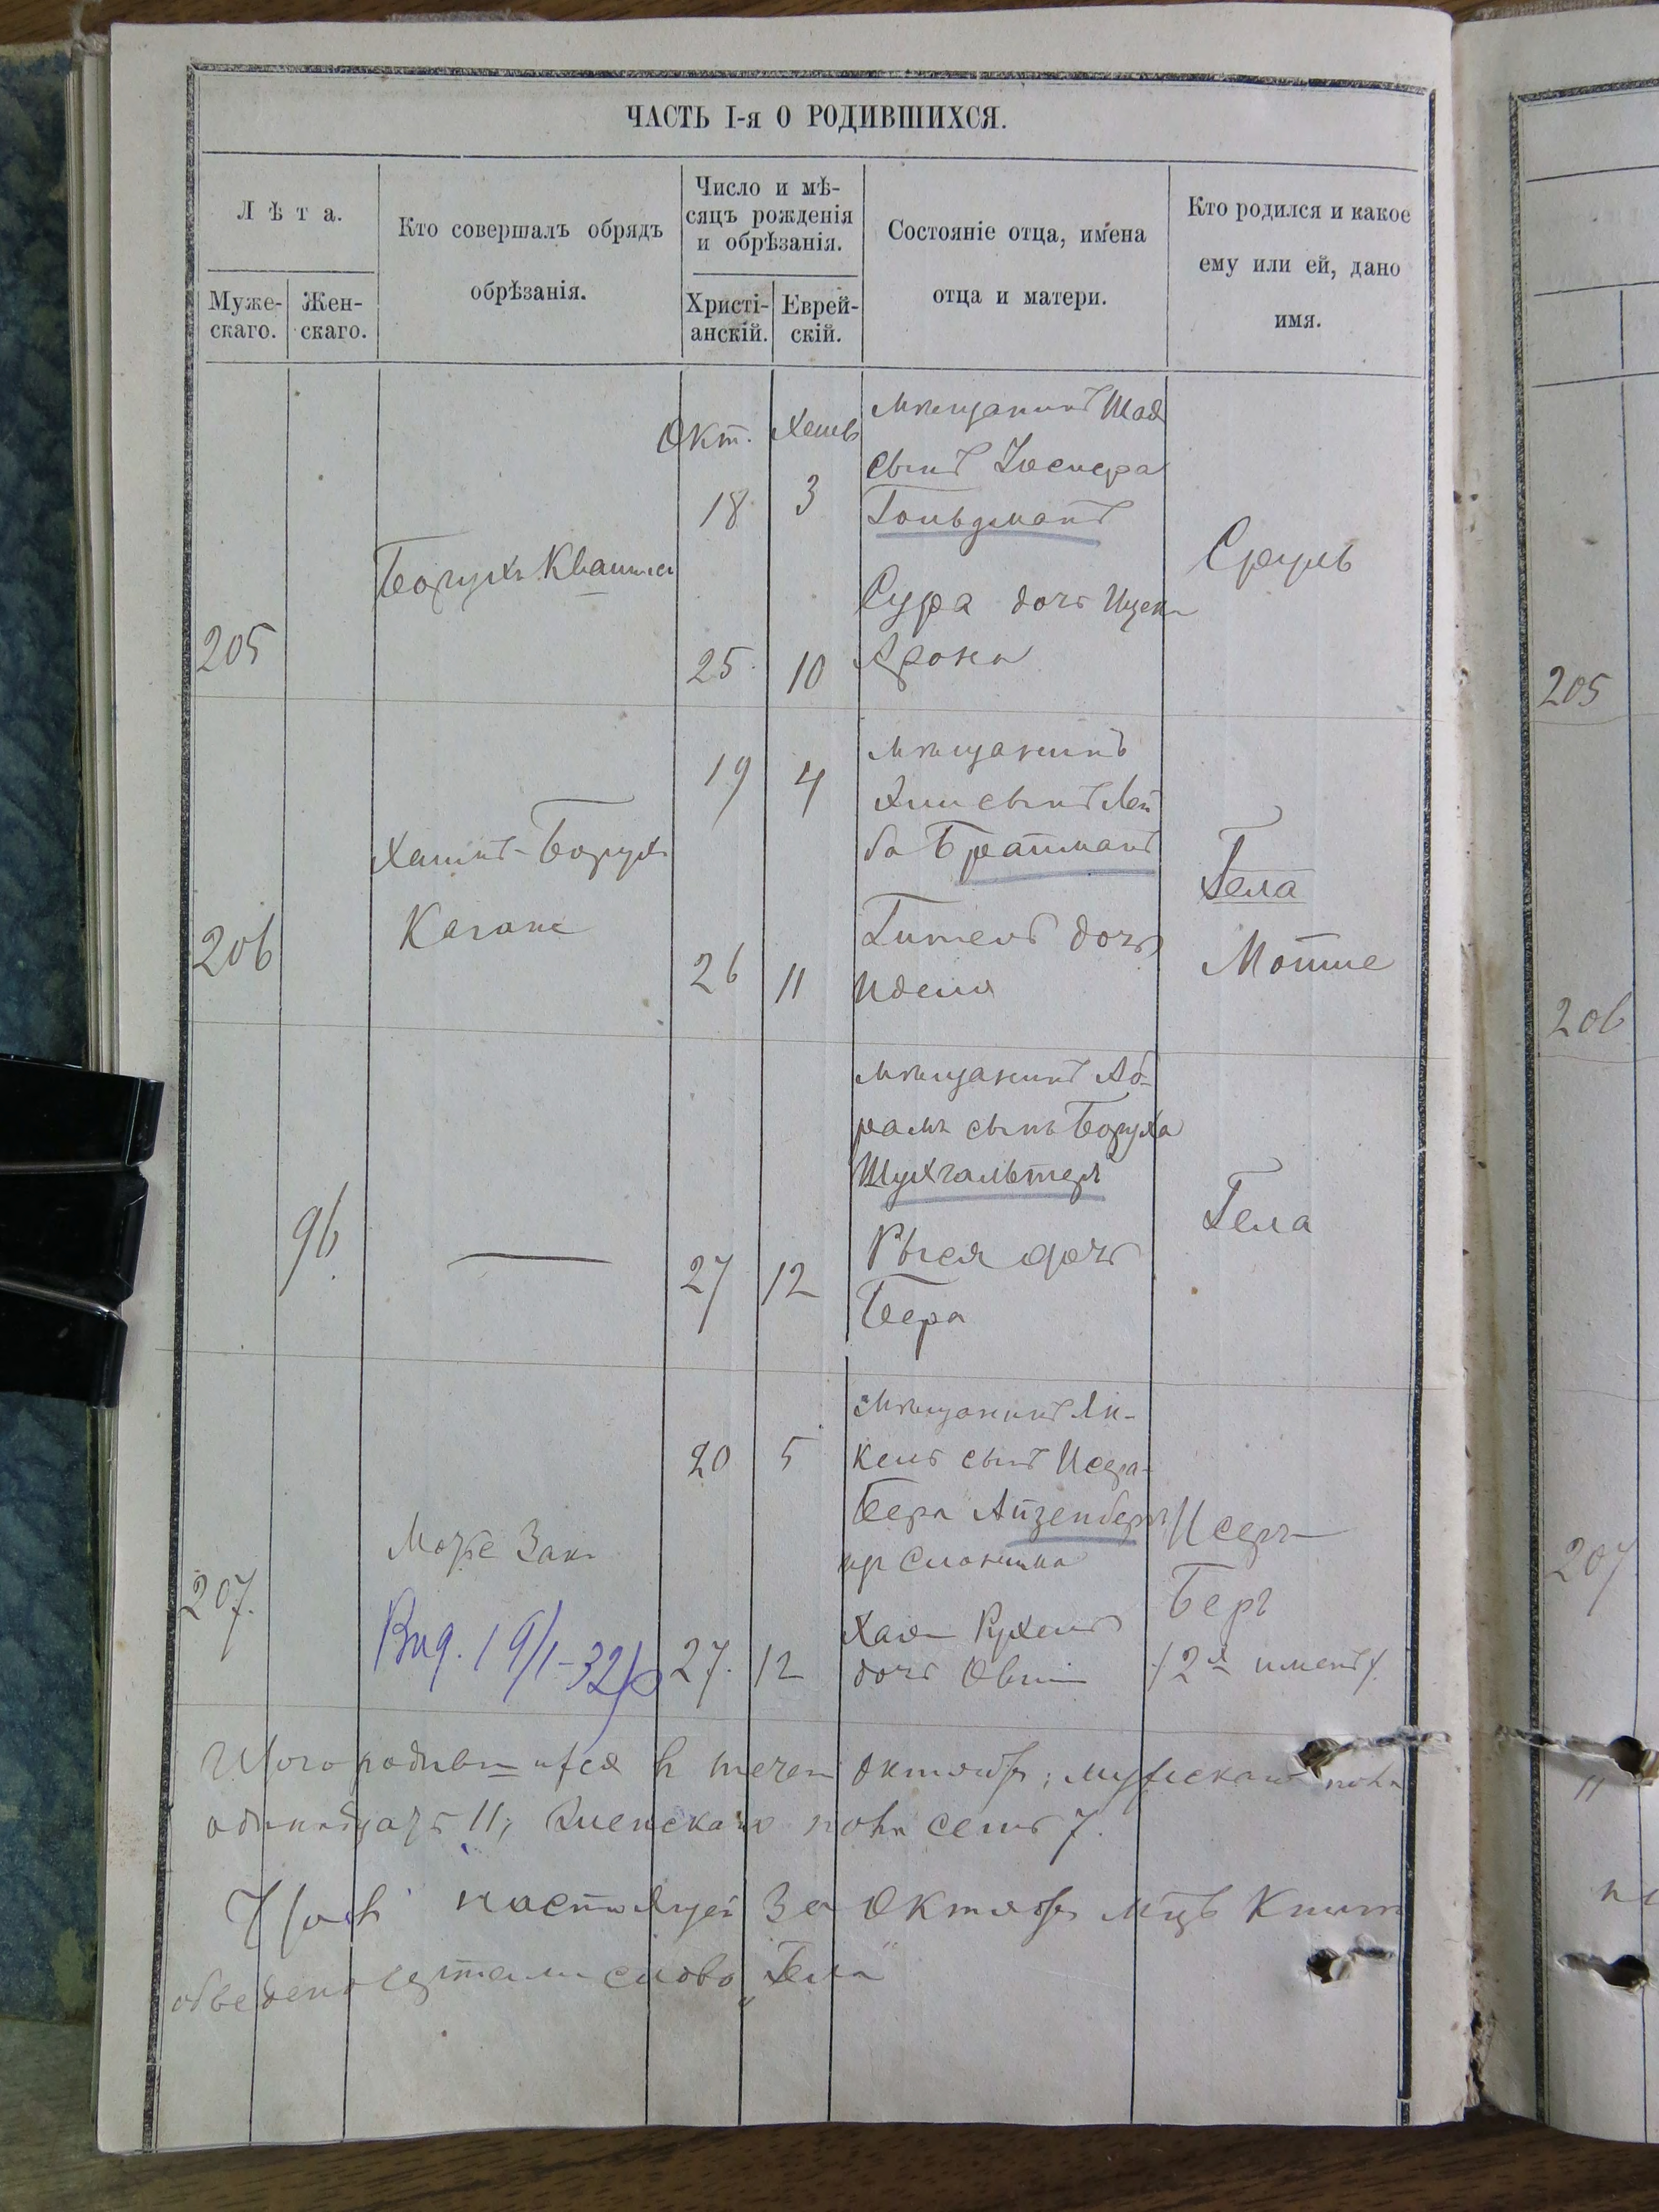 ЧАСТЬ I-я О РОДИВШИХСЯ.
Лѣта.
Муже-
скаго.
Жен-
скаго.
Кто совершалъ обрядъ
обрѣзанія.
Число и мѣ-
сяцъ рожденія
и обрѣзанія.
Христі-
анскій.
Еврей-
скій.
Состояніе отца, имена
отца и матери.
Кто родился и какое
ему или ей, дано
имя.
205
Борухъ
Окт.
18
25
Хешв
3
10
мѣщанинъ
сынъ
Гольдманъ
Сура дочь Ицек
Арона
Сруль
205
206
Хаимъ-Борух
Каганъ
19
26
4
11
мѣщанинъ
сынъ Лей
ба Братманъ
Гитель дочь
Иделя
Гела
Мотие
206
96
—
27
12
мѣщанинъ Аб-
рамъ сынъ Боруха
Шухгальтеръ
Рыся дочь
Бера
Гела
207.
Може Зак
Вид. 19/I-32
20
27.
5
12
Мѣщанинъ Ян-
кель сынъ Исера-
Бера Айзенбергъ
Хая Рухель
дочь
Исеръ
Беръ
/2я именъ/.
207
Итого родившихся в течен октября; мужскаго пола
одинадцать 11; женскаго пола семь 7.
11
настоящей за Октябрь Мцъ
обведено слово „Гела“